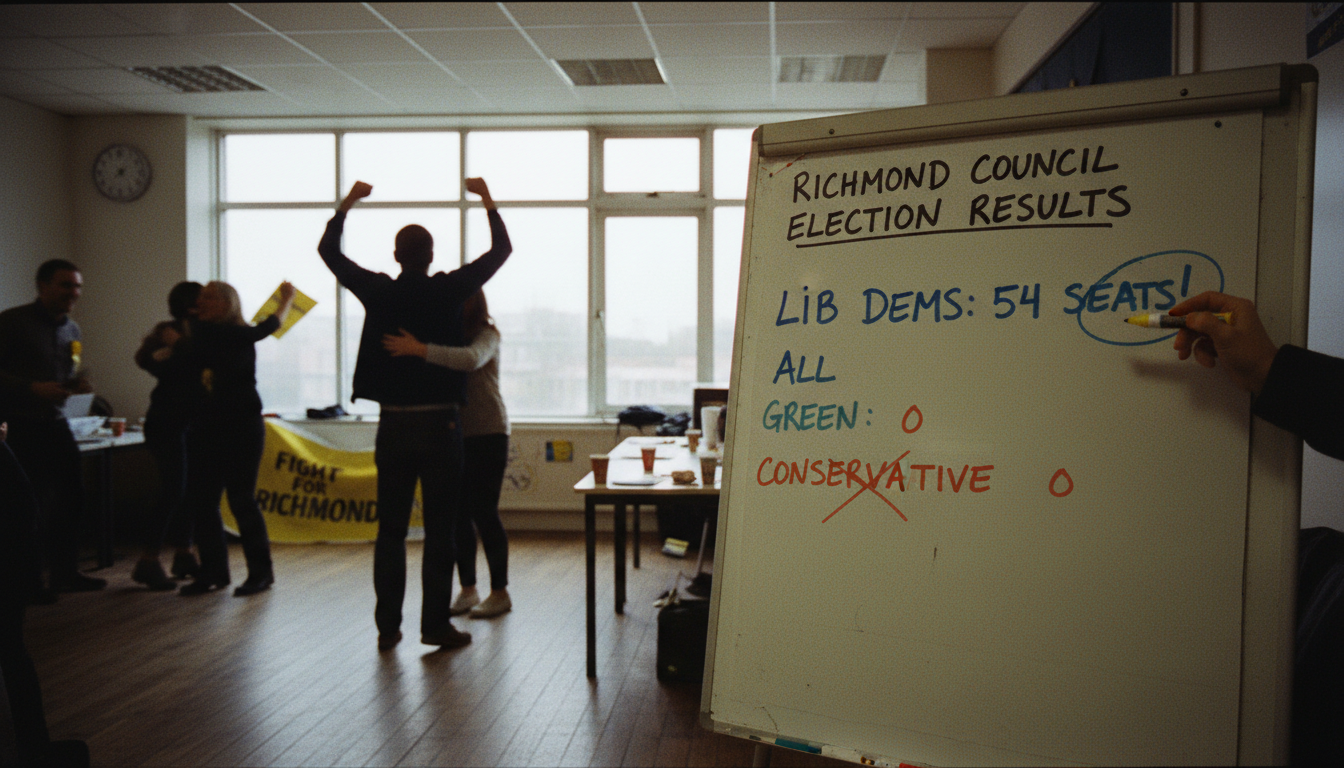 RICHMOND COUNCIL
ELECTION RESULTS
LIB DEMS: 54 SEATS!
ALL
GREEN: 0
CONSERVATIVE 0
FIGHT
FOR
RICHMOND